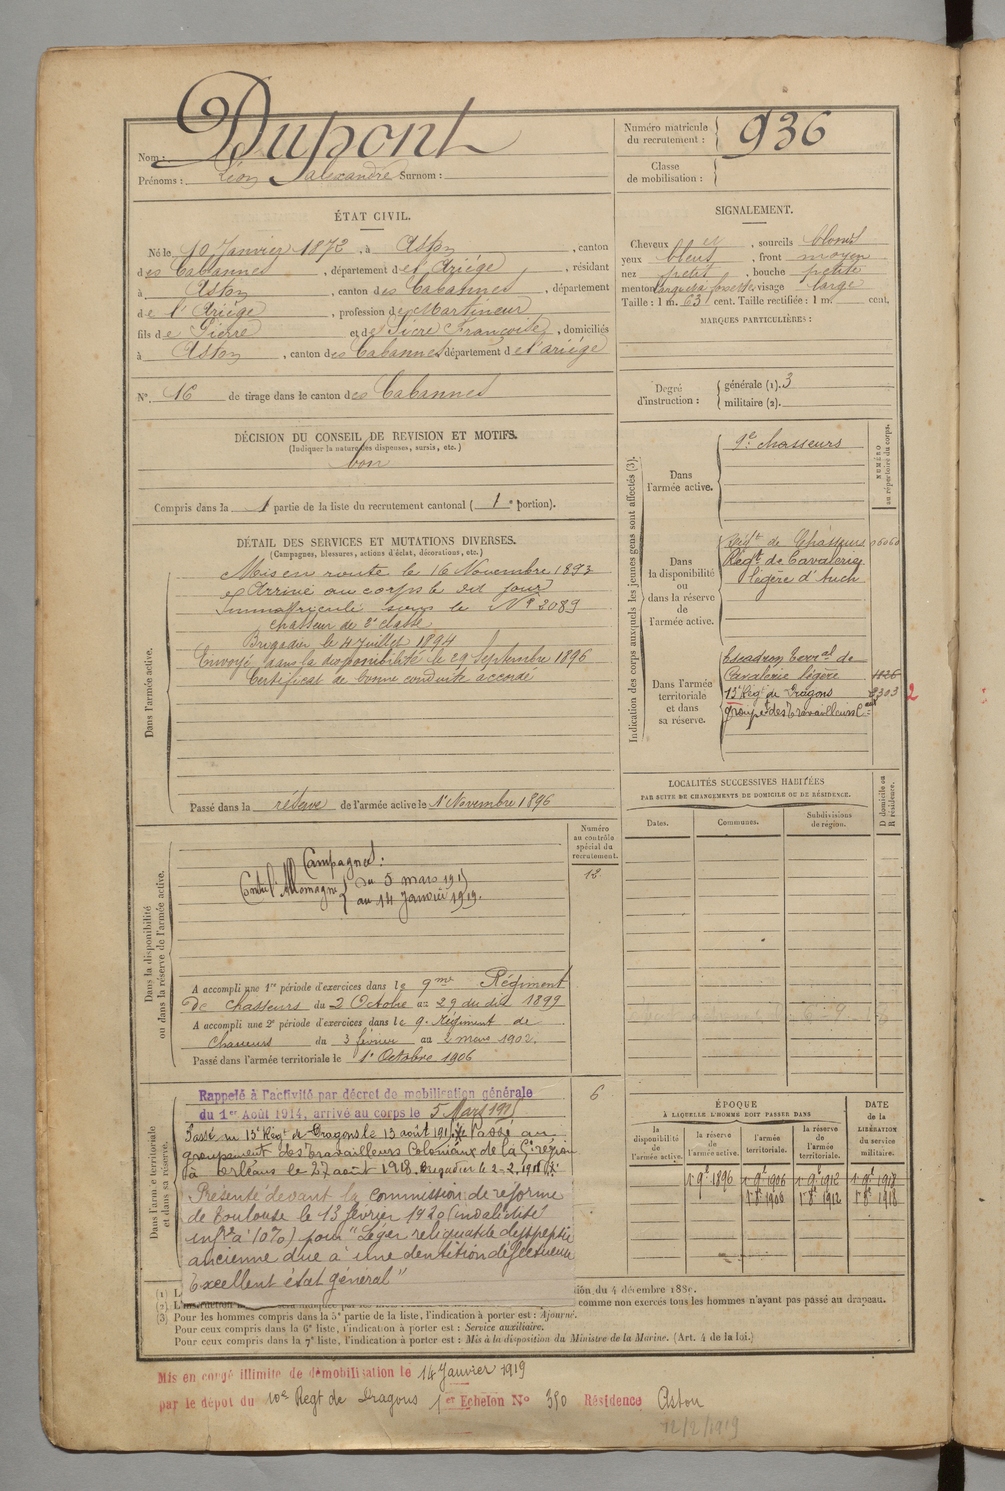 Nom : Dupont
Prénoms : Léon Alexandre Surnom :
Numéro matricule du recrutement : 936
Classe de mobilisation :
ÉTAT CIVIL.
Né le 10 Janvier 1872, à Aston, canton
des Cabannes, département de l'Ariége, résidant
à Aston, canton des Cabannes, département
de l'Ariége, profession de
fils de Pierre et de Sicre Françoise, domiciliés
à Aston, canton des Cabannes département de l'ariége
N° 16 de tirage dans le canton des Cabannes
DÉCISION DU CONSEIL DE REVISION ET MOTIFS.
(Indiquer la nature des dispenses, sursis, etc.)
bon
Compris dans la 1 partie de la liste du recrutement cantonal (1e portion).
DÉTAIL DES SERVICES ET MUTATIONS DIVERSES.
(Campagnes, blessures, actions d'éclat, décorations, etc.)
Dans l'armée active.
Mis en route le 16 Novembre 1893
et Arrivé au corps le dit jour
Immatriculé sous le N° 2089
chasseur de 2e classe
Brigadier le 4 Juillet 1894
Envoyé dans la disponibilité le 29 Septembre 1896
Certificat de bonne conduite accordé
Passé dans la réserve de l'armée active le 1r Novembre 1896
Numéro au contrôle spécial du recrutement.
12
Dans la disponibilité ou dans la réserve de l'armée active.
Campagnes :
Contre l'Allemagne
du 5 mars 1915
au 14 Janvier 1919.
A accompli une 1re période d'exercices dans le 9me Régiment
de Chasseurs du 2 Octobre au 29 du dit 1899
A accompli une 2e période d'exercices dans le 9e Régiment de
chasseurs du 3 février au 2 mars 1902.
Passé dans l'armée territoriale le 1r Octobre 1906
Dans l'armée territoriale et dans sa réserve.
6
Rappelé à l'activité par décret de mobilisation générale
du 1er Août 1914, arrivé au corps le 5 Mars 1915
Passé au 15e Régt de Dragons le 13 août 191 Passé au
groupement des travailleurs Coloniaux de la région
à Orléans le 27 août 1918. Brigadier le 2-2.1918
Présenté devant la commission de réforme
de Toulouse le 13 février 1920 (invalidité
infre à 10%) pour "Léger reliquat de dyspepsie
ancienne due à une dentition défectueuse
Excellent état général"
SIGNALEMENT.
Cheveux et, sourcils blonds
yeux bleus, front moyen
nez petit, bouche petite
menton à fossette visage large
Taille : 1 m. 63 cent. Taille rectifiée : 1 m. cent.
MARQUES PARTICULIÈRES :
Degré d'instruction :
générale (1). 3
militaire (2).
Indication des corps auxquels les jeunes gens sont affectés (3).
NUMÉRO au répertoire du corps.
Dans l'armée active.
9e chasseurs
Dans la disponibilité ou dans la réserve de l'armée active.
Régt de Chasseurs
Régt de Cavalerie
légère d'Auch
Dans l'armée territoriale et dans sa réserve.
Escadron Terral de
Cavalerie légère
15e Régt de Dragons 2303 2
groupet des Travailleurs
LOCALITÉS SUCCESSIVES HABITÉES
PAR SUITE DE CHANGEMENTS DE DOMICILE OU DE RÉSIDENCE.
D domicile ou R résidence.
Dates. Communes. Subdivisions de région.
ÉPOQUE
À LAQUELLE L'HOMME DOIT PASSER DANS
DATE de la LIBÉRATION du service militaire.
la disponibilité de l'armée active.
la réserve de l'armée active.
l'armée territoriale.
la réserve de l'armée territoriale.
1r 9e 1896 1r 9e 1906 1r 9e 1912 1r 9e 1918
1r 8e 1906 1r 8e 1912 1r 8e 1918
(1) L
ition du 4 décembre 1889.
(2) L'instruction comme non exercés tous les hommes n'ayant pas passé au drapeau.
(3) Pour les hommes compris dans la 5e partie de la liste, l'indication à porter est : Ajourné.
Pour ceux compris dans la 6e liste, l'indication à porter est : Service auxiliaire.
Pour ceux compris dans la 7e liste, l'indication à porter est : Mis à la disposition du Ministre de la Marine. (Art. 4 de la loi.)
Mis en congé illimité de démobilisation le 14 Janvier 1919
par le dépôt du 10e Regt de Dragons 1er Echelon N° 350 Résidence Aston
12/2/1919